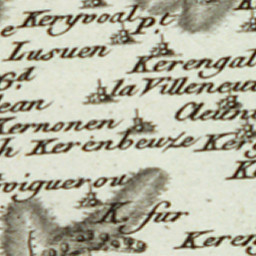 Keryvoal pt.
Lusuen
Kerengal
6.d
la Villeneuve
ean
Cleun
Kernonen
h Kerénbeuze Ker
oiguerou
K. fur
Keren